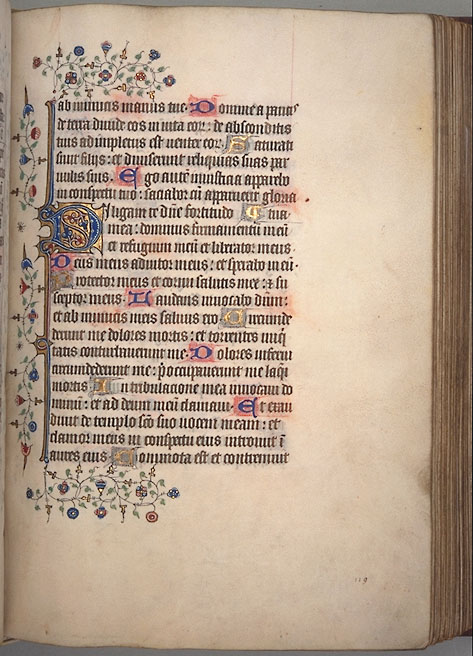 ab inimicis manus tue. Domine a paucis
de terra diuide eos in uita eor: de absconditis
tuis adimpletus est uenter eor. Saturati
sunt filijs: et dimiserunt reliquias suas par
uulis suis. Ego autē in iusticia apparebo
in conspectu tuo: saciabor cū apparuerit gloria
Diligam te dn̄e fortitudo tua
mea: dominus firmamentū meū
et refugium meū et liberator meus.
Deus meus adiutor meus: et sperabo in eū.
Protector meus et cornu salutis mee: et su
sceptor meus. Laudans inuocabo dn̄m:
et ab inimicis meis saluus ero. Circunde
derunt me dolores mortis: et torrentes iniq
tatis conturbauerunt me. Dolores inferni
circundederunt me: p̄occupauerunt me laq̄i
mortis. In tribulacione mea inuocaui do
minū: et ad deum meū clamaui. Et exau
diuit de templo sc̄o suo uocem meam: et
clamor meus in conspectu eius introiuit ī
aures eius. Commota est et contremuit
119